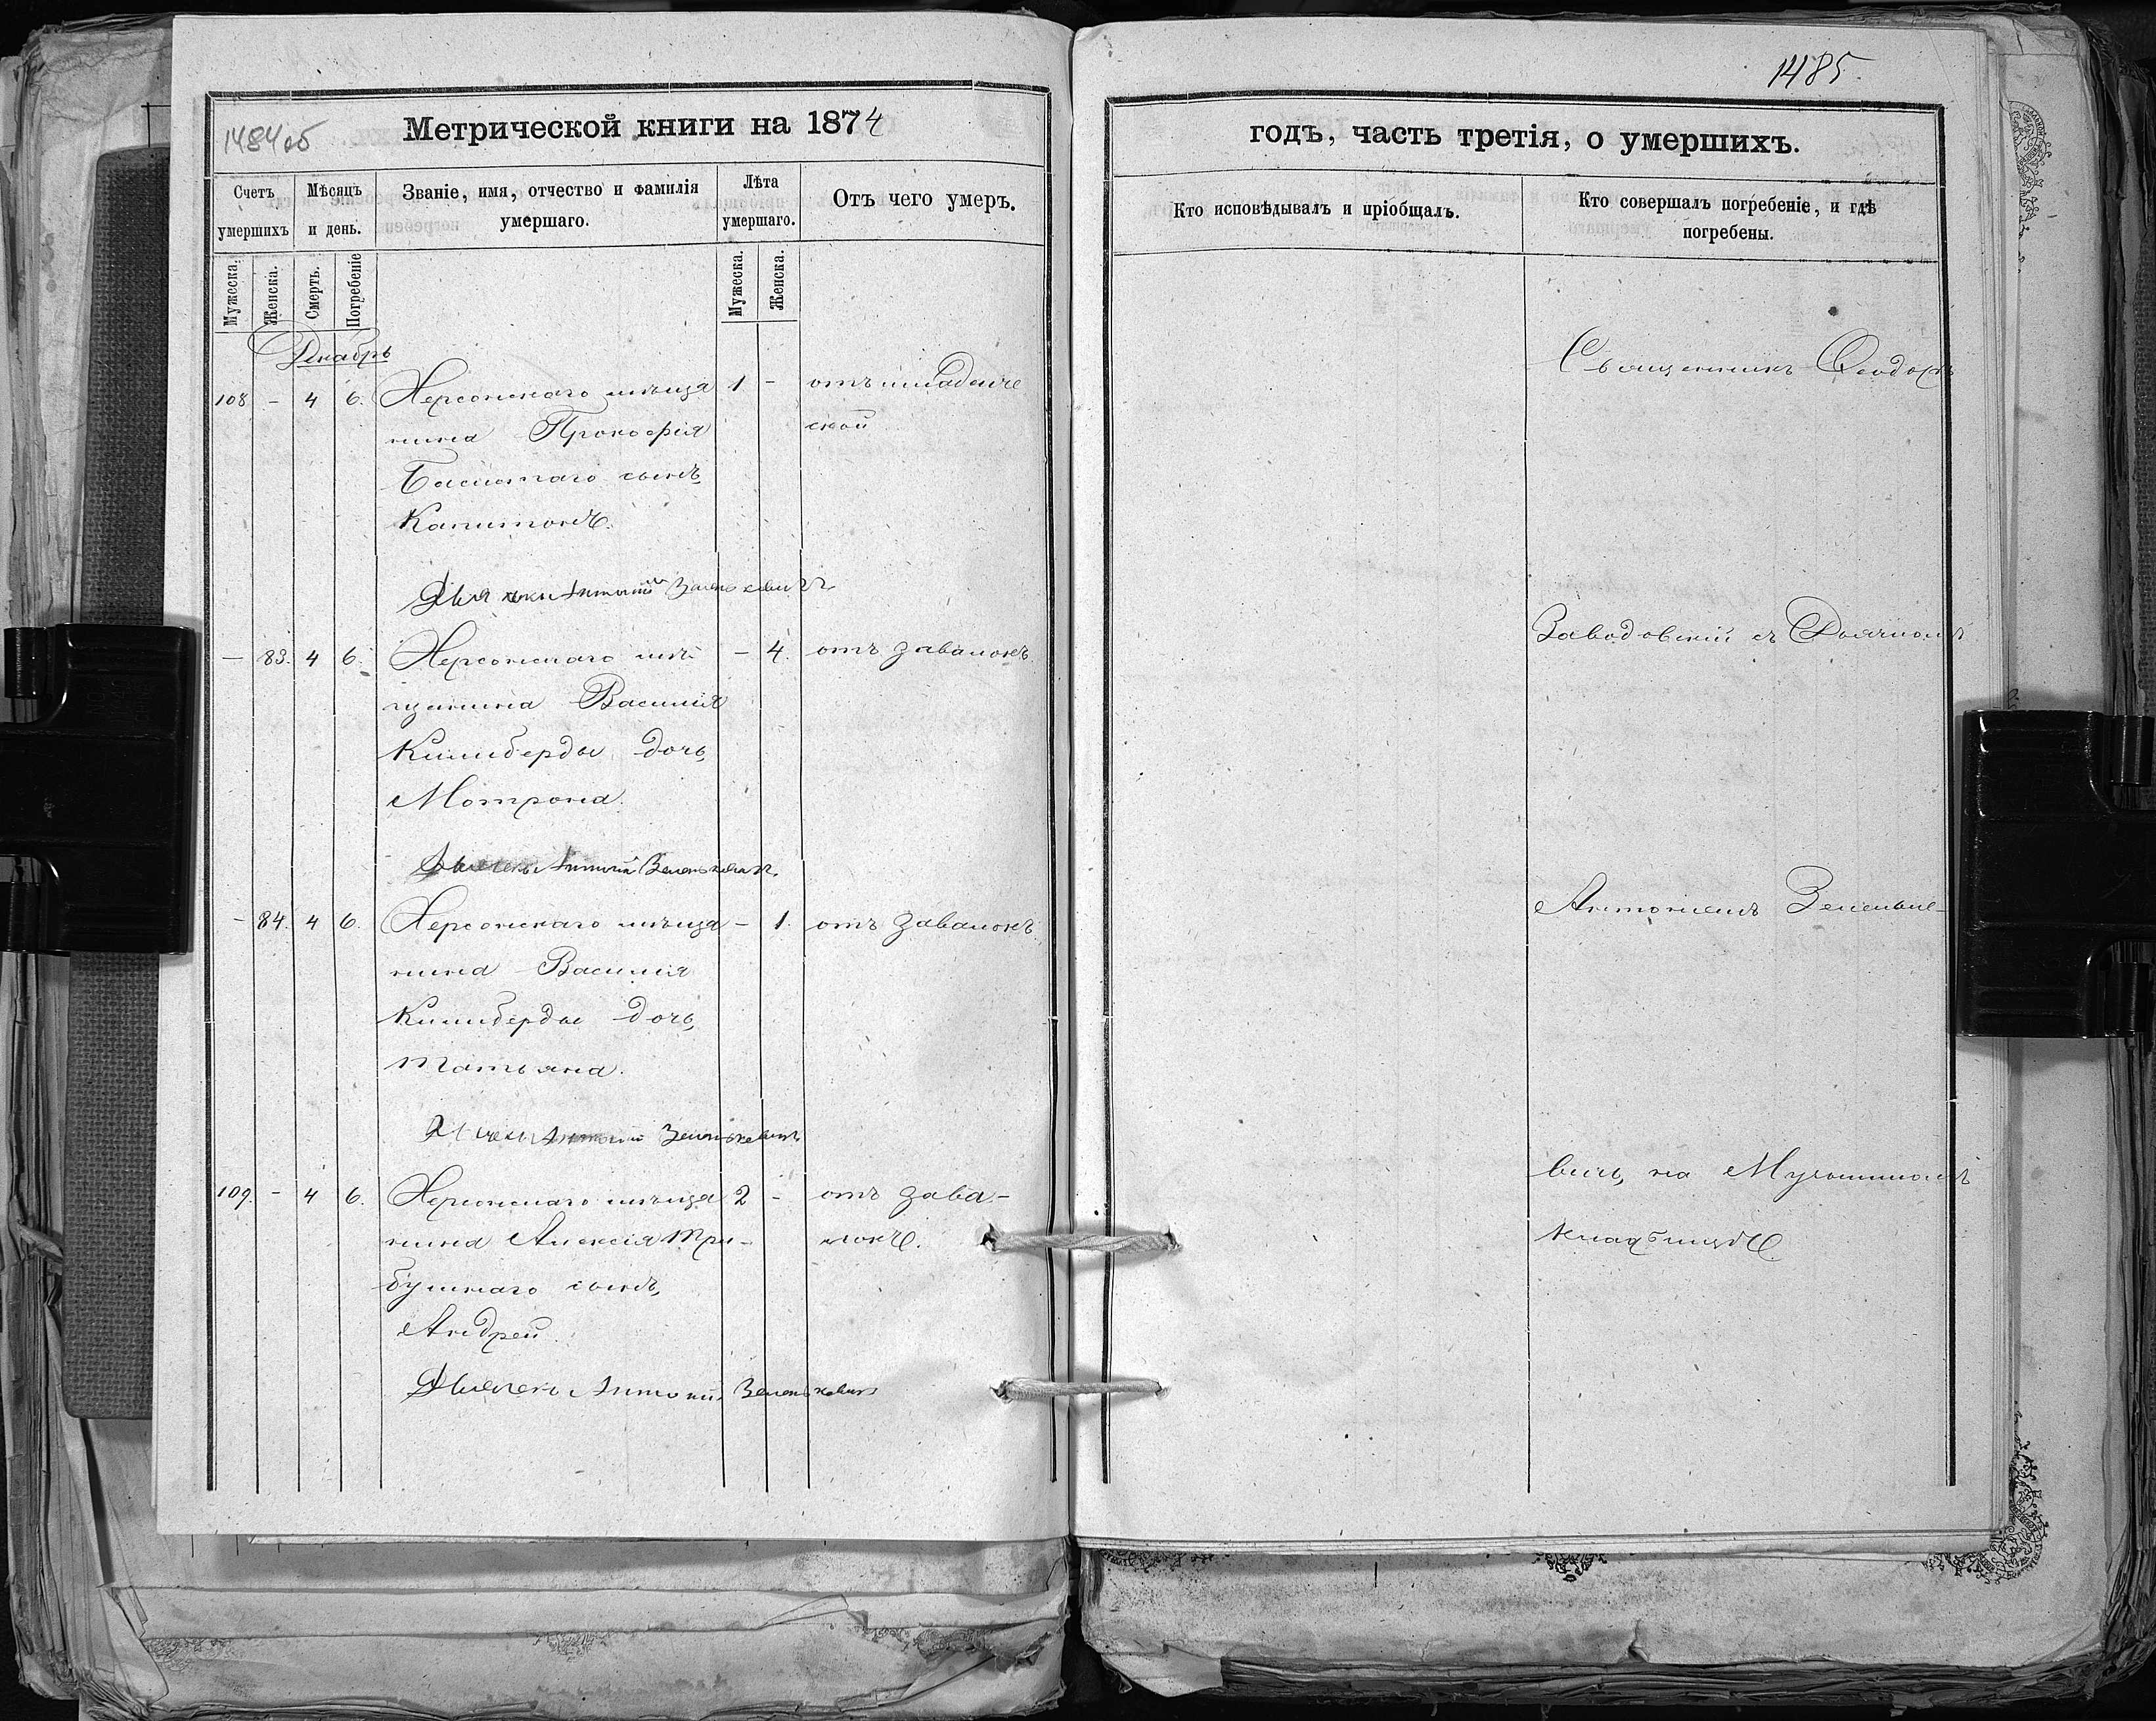 1484об
Метрической книги на 1874
Счетъ умершихъ
Мѣсяцъ и день.
Званіе, имя, отчество и фамилія умершаго.
Лѣта умершаго.
Отъ чего умеръ.
Мужеска.
Женска.
Смерть.
Погребеніе
Мужеска.
Женска.
Декабрь
108 - 4 6. Херсонскаго мѣща 1 - отъ младенче
нина Прокофія ской
сынъ
Капитонъ.
Антоній Зеленкевичъ
- 83. 4 6. Херсонскаго мѣ - 4. отъ завалокъ
щанина Василія
Килиберды дочь,
Мотрона.
Дьячекъ Антоній Зеленкевичъ
- 84. 4 6. Херсонскаго мѣща - 1. отъ завалокъ
нина Василія
Килиберды дочь,
Татьяна.
Дьячекъ Антоній Зеленкевичъ
109. - 4 6. Херсонскаго мѣща 2 - отъ зава-
нина Алексія Три- локъ.
бушнаго сынъ,
Андрей.
Дьячекъ Антоній Зеленкевичъ
1485.
годъ, часть третія, о умершихъ.
Кто исповѣдывалъ и пріобщалъ.
Кто совершалъ погребеніе, и гдѣ погребены.
Священникъ Ѳеодоръ
Заводовскій съ Дьячкомъ
Антоніемъ Зеленке-
вичъ, на
кладбищѣ